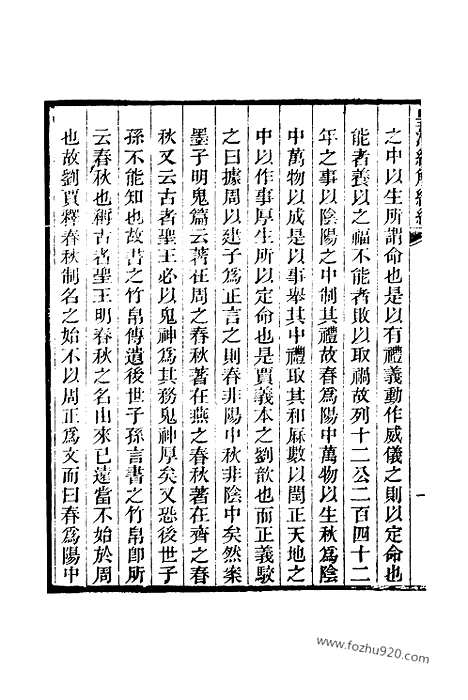 皇清經解續編
之中以生所謂命也是以有禮義動作威儀之則以定命也
能者養以之福不能者敗以取禍故列十二公二百四十二
年之事以陰陽之中制其禮故春爲陽中萬物以生秋爲陰
中萬物以成是以事舉其中禮取其和厤數以閏正天地之
中以作事厚生所以定命也是賈義本之劉歆也而正義駮
之曰據周以建子爲正言之則春非陽中秋非陰中矣然案
墨子明鬼篇云著在周之春秋著在燕之春秋著在齊之春
秋又云古者聖王必以鬼神爲其務鬼神厚矣又恐後世子
孫不能知也故書之竹帛傳遺後世子孫言書之竹帛卽所
云春秋也稱古者聖王明春秋之名由來已遠當不始於周
也故劉賈釋春秋制名之始不以周正爲文而曰春爲陽中
一
www.fozhu920.com